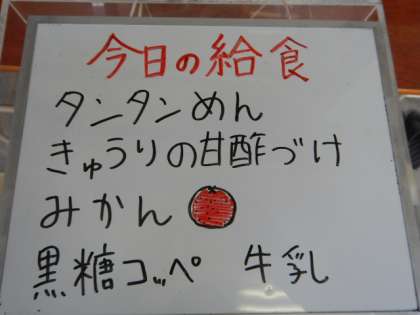 今日の給食
タンタンめん
きゅうりの甘酢づけ
みかん
黒糖コッペ 牛乳